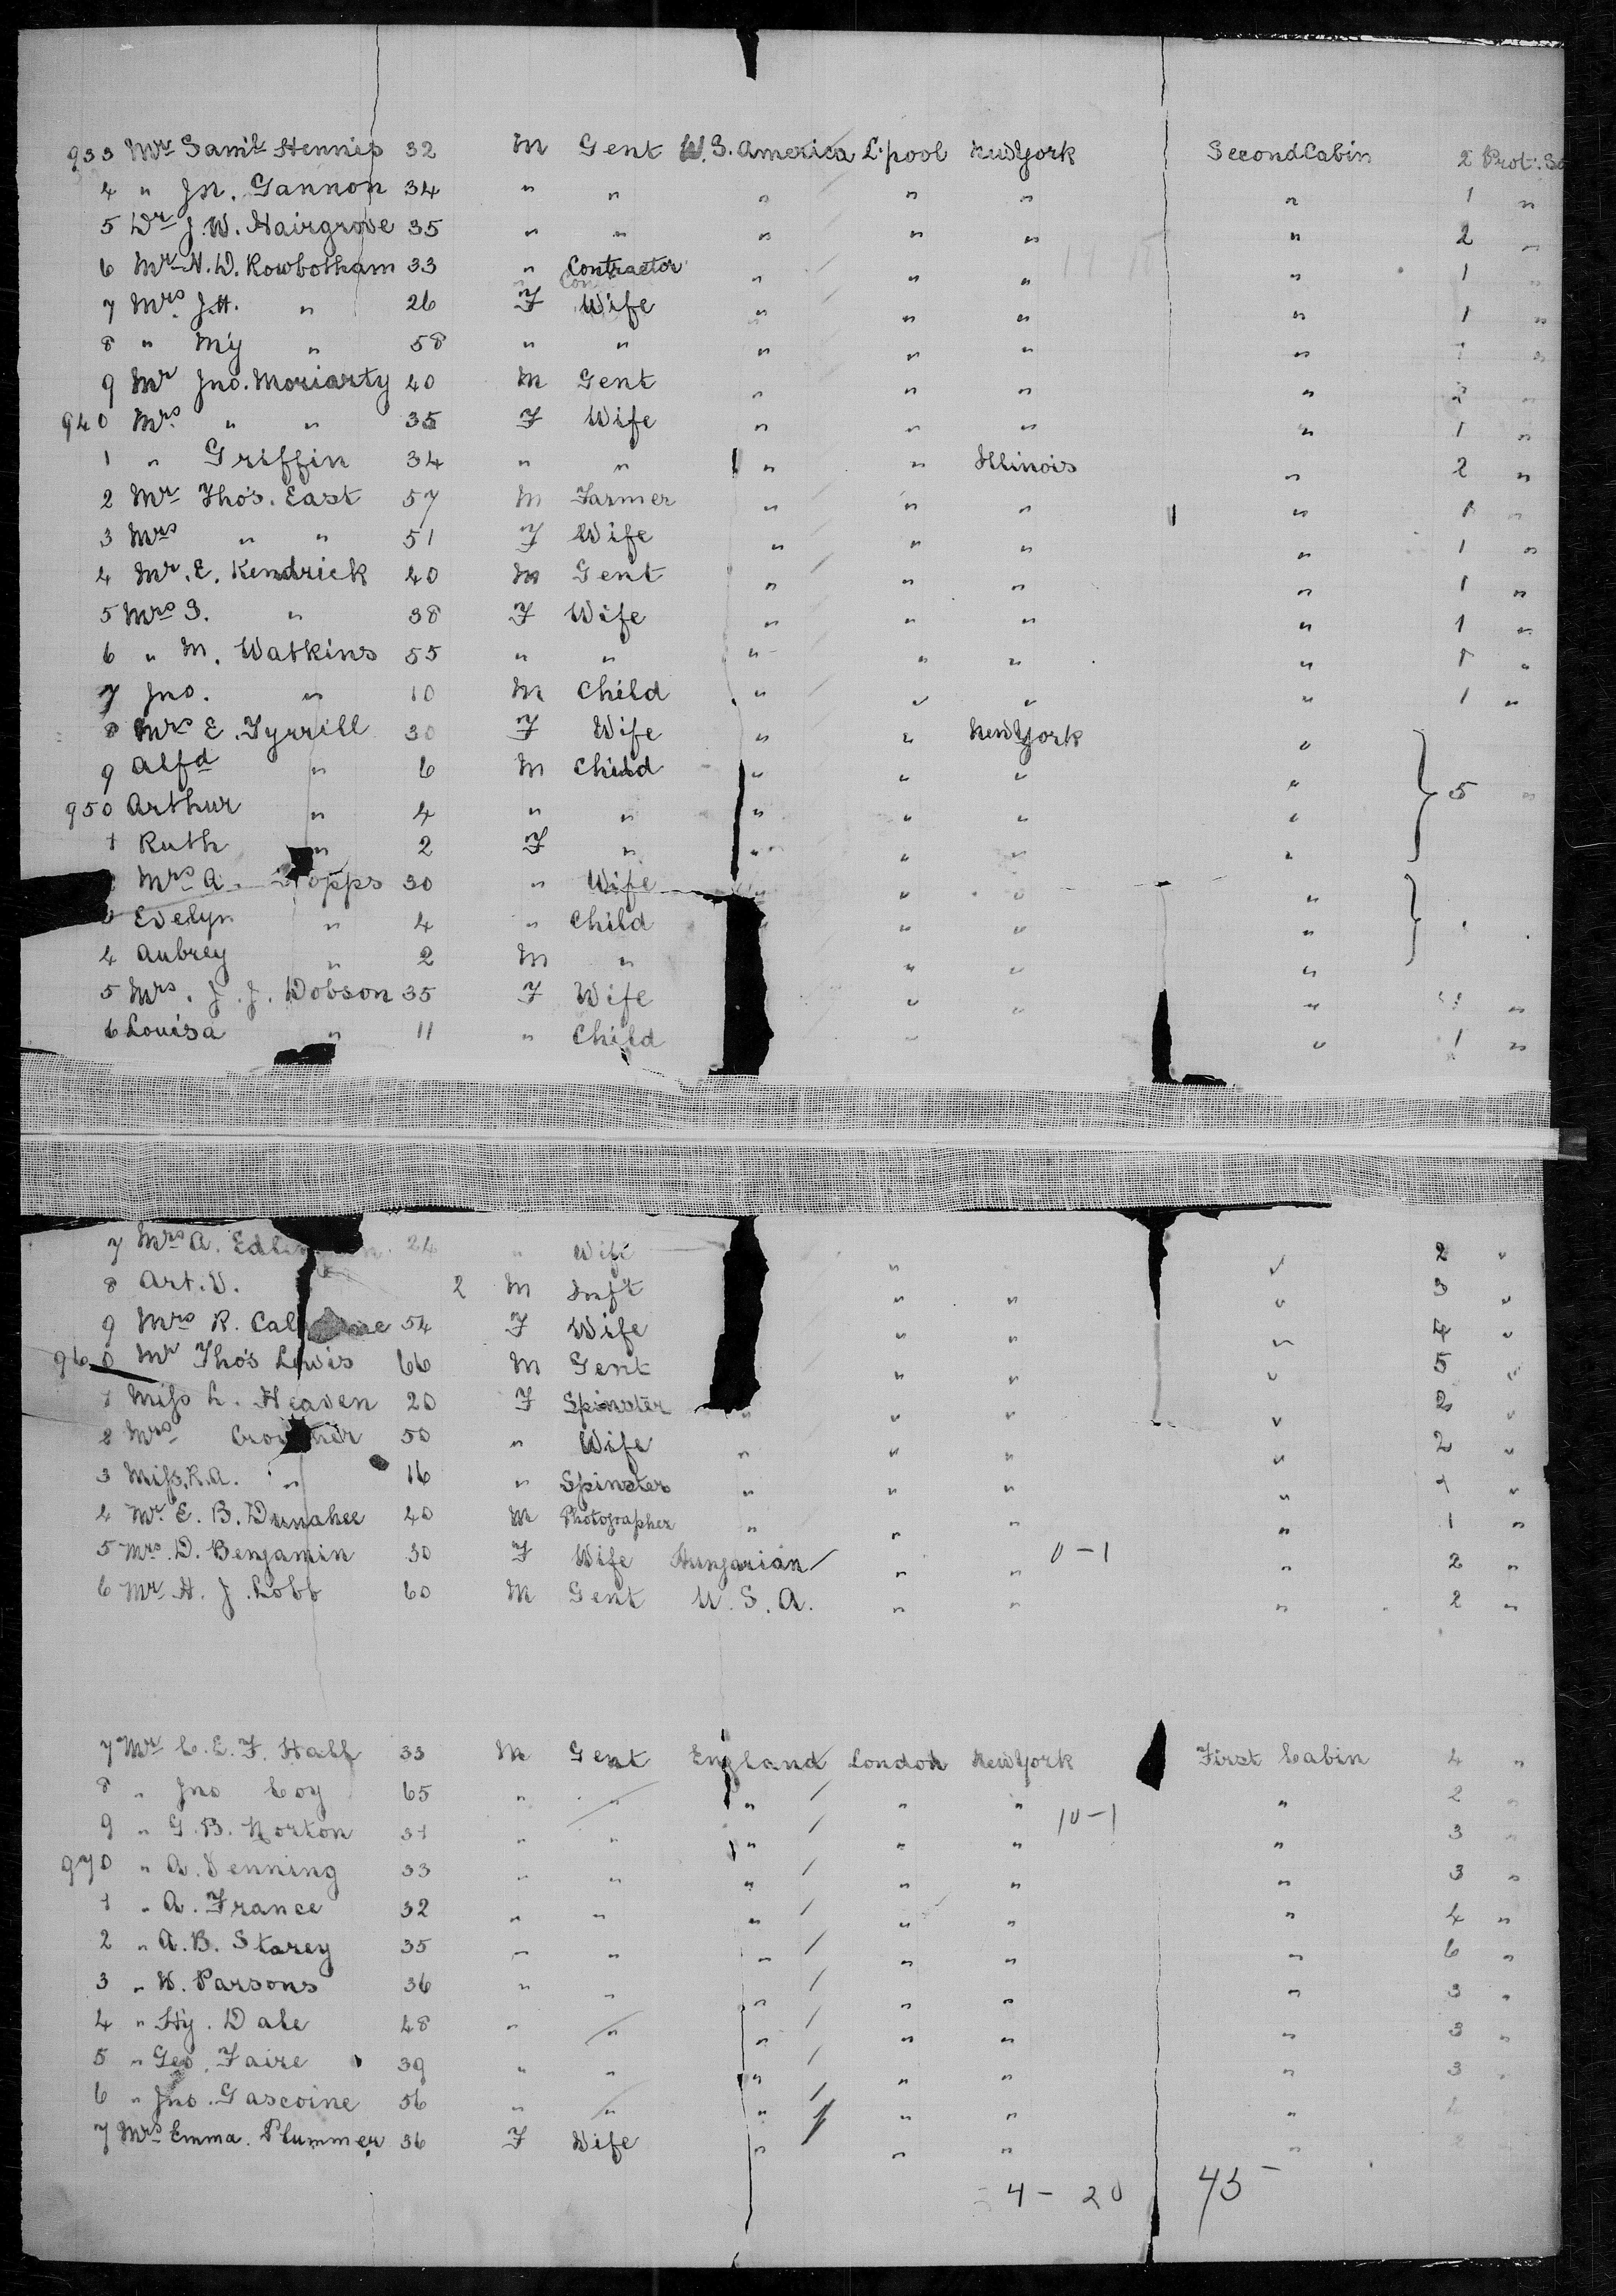 933 Mr Saml Hennis 32 M Gent U.S. America L'pool New York Second Cabin 2 Prot:
4 " Jn. Gannon 34 " " " " " " 1 "
5 Dr J. W. Hairgrove 35 " " " " " " 2 "
6 Mr N. D. Rowbotham 33 " Contractor " " " " 1 "
7 Mrs J.H. " 26 F Wife " " " " 1 "
8 " My " 58 " " " " " " 1 "
9 Mr Jno. Moriarty 40 M Gent " " " " 2 "
940 Mrs " " 35 F Wife " " " " 1 "
1 " Griffin 34 " " " " Illinois " 2 "
2 Mr Thos. East 57 M Farmer " " " " 1 "
3 Mrs " " 51 F Wife " " " " 1 "
4 Mr. E. Kendrick 40 M Gent " " " " 1 "
5 Mrs S. " 38 F Wife " " " " 1 "
6 " M. Watkins 55 " " " " " " 1 "
7 Jno. " 10 M Child " " " " 1 "
8 Mrs E. Tyrrill 30 F Wife " " New York "
9 Alfd " 6 M Child " " " " 5 "
950 Arthur " 4 " " " " " "
1 Ruth " 2 F " " " " "
Mrs A. 30 " Wife " " " "
Evelyn " 4 " Child " " "
4 Aubrey " 2 M " " " "
5 Mrs. J. J. Dobson 35 F Wife " " " "
6 Louisa " 11 " Child " " 1 "
7 Mrs A. 24 " Wife " " 2 "
8 Art. V. 2 M Inft " " " 3 "
9 Mrs R. 54 F Wife " " " 4 "
960 Mr Thos Lewis 66 M Gent " " " 5 "
1 Miss L. Heaven 20 F Spinster " " " " 2 "
2 Mrs 50 " Wife " " " " 2 "
3 Miss. R. A. " 16 " Spinster " " " " 1 "
4 Mr. E. B. Dunahee 40 M Photographer " " " " 1 "
5 Mrs. D. Benjamin 30 F Wife Hungarian " " 0-1 " 2 "
6 Mr. H. J. Lobb 60 M Gent U. S. A. " " " 2 "
7 Mr C. E. F. Hall 33 M Gent England London New York First Cabin 4 "
8 " Jno Coy 65 " " " " " " 2 "
9 " G. B. Norton 31 " " " " " 10-1 " 3 "
970 " A. Venning 33 " " " " " " 3 "
1 " A. France 32 " " " " " " 4 "
2 " A. B. Starey 35 " " " " " " 6 "
3 " W. Parsons 36 " " " " " " 3 "
4 " Hy. Dale 48 " " " " " " 3 "
5 " Geo. Faire 39 " " " " " " 3 "
6 " Jno. Gascoine 56 " " " " " "
7 Mrs Emma. Plummer 36 F Wife " " " "
4 - 20 45